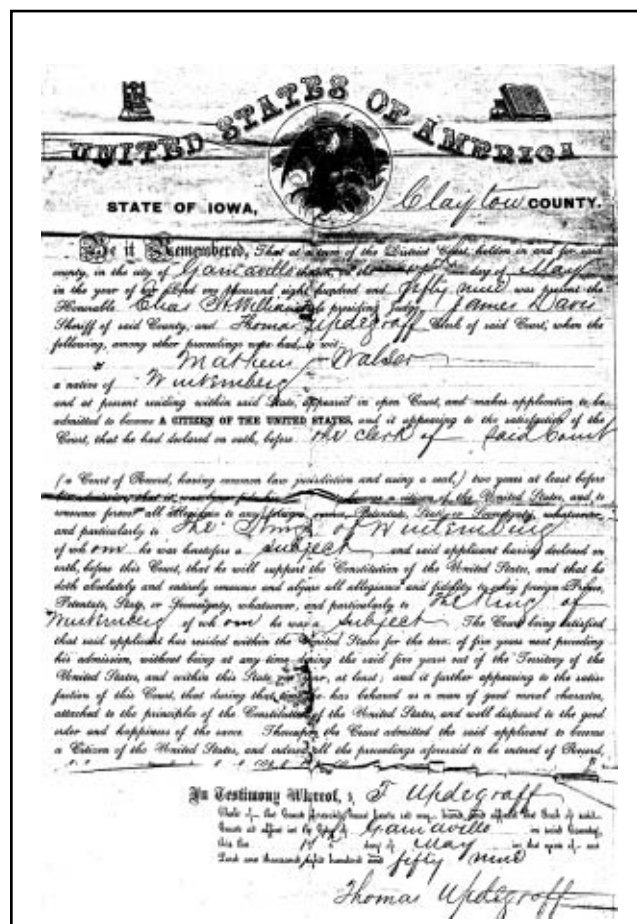 UNITED STATES OF AMERICA
STATE OF IOWA, Clayton COUNTY.
Be it Remembered, That at a term of the District Court, holden in and for said
county, in the city of Garnavillo on the day of May
in the year of our Lord one thousand eight hundred and fifty nine was present the
Honorable Elias H Williams presiding Judge, James Davis
Sheriff of said County, and Thomas Updegraff Clerk of said Court, when the
following, among other proceedings were had, to wit:
Matheus Walser
a native of Wurtemberg
and at present residing within said State, appeared in open Court, and makes application to be
admitted to become A CITIZEN OF THE UNITED STATES, and it appearing to the satisfaction of the
Court, that he had declared on oath, before the clerk of said Court
(a Court of Record, having common law jurisdiction and using a seal,) two years at least before
his admission, that it was his to become a citizen of the United States, and to
renounce forever all allegiance to any foreign Potentate, State, or Sovereignty, whatsoever
and particularly to The King of Wurtemburg
of whom he was heretofore a subject and said applicant having declared on
oath, before this Court, that he will support the Constitution of the United States, and that he
doth absolutely and entirely renounce and abjure all allegiance and fidelity to every foreign Prince,
Potentate, Party, or Sovereignty, whatsoever, and particularly to The King of
Wurtemberg of whom he was a subject The Court being satisfied
that said applicant has resided within the United States for the term of five years next preceding
his admission, without being at any time during the said five years out of the Territory of the
United States, and within this State one year, at least; and it further appearing to the satis-
faction of this Court, that during that time he has behaved as a man of good moral character,
attached to the principles of the Constitution of the United States, and well disposed to the good
order and happiness of the same. Thereupon the Court admitted the said applicant to become
a Citizen of the United States, and ordered all the proceedings aforesaid to be entered of Record,
In Testimony Whereof, I, T Updegraff
Clerk of the Court have here set my hand and affixed the Seal of said
Court at office in the City of Garnavillo in said County,
this day of May in the year of our
Lord one thousand eight hundred and fifty nine
Thomas Updegraff